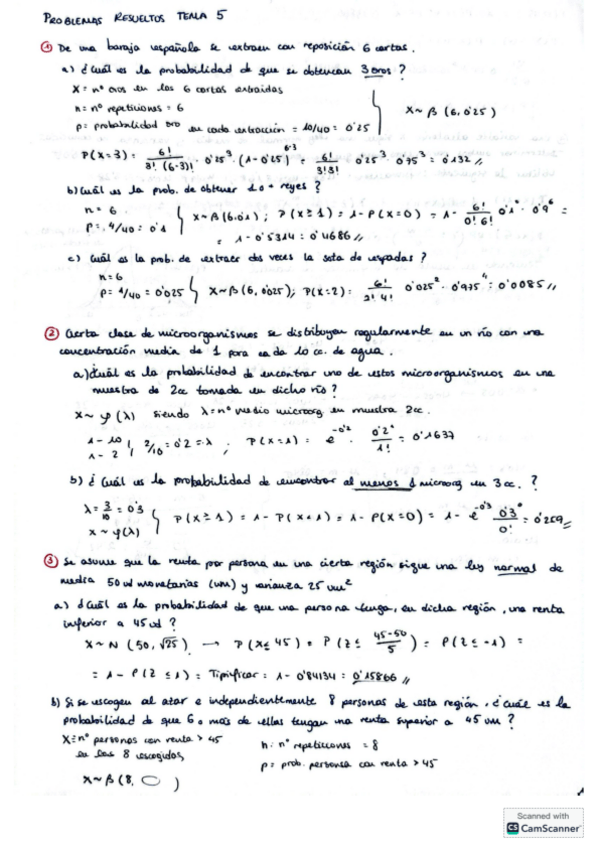 PROBLEMAS RESUELTOS TEMA 5
① De una baraja española se extraen con reposición 6 cartas.
a) ¿Cuál es la probabilidad de que se obtengan 3 oros?
X = nº oros en las 6 cartas extraídas
n = nº repeticiones = 6
p = probabilidad oro en cada extracción = 10/40 = 0'25
X ~ β (6, 0'25)
P(X=3) = 6!/3!(6-3)! 0'25³ · (1-0'25)⁶⁻³ = 6!/3!3! 0'25³ · 0'75³ = 0'132 //
b) Cuál es la prob. de obtener 1 o + reyes?
n = 6
p = 4/40 = 0'1
X ~ β(6, 0'1) ; P(X ≥ 1) = 1 - P(X=0) = 1 - 6!/0!6! 0'1⁰ · 0'9⁶ =
= 1 - 0'5314 = 0'4686 //
c) Cuál es la prob. de extraer dos veces la sota de espadas?
n = 6
p = 1/40 = 0'025
X ~ β(6, 0'025); P(X=2) = 6!/2!4! 0'025² · 0'975⁴ = 0'0085 //
② Cierta clase de microorganismos se distribuyen regularmente en un río con una
concentración media de 1 para cada 10 cc. de agua.
a) ¿Cuál es la probabilidad de encontrar uno de estos microorganismos en una
muestra de 2cc tomada en dicho río?
X ~ φ(λ) siendo λ = nº medio microorg en muestra 2cc.
1 - 10
1 - 2
2/10 = 0'2 = λ ; P(X=1) = e⁻⁰'² · 0'2¹/1! = 0'1637
b) ¿Cuál es la probabilidad de encontrar al menos 1 microorg en 3 cc.?
λ = 3/10 = 0'3
X ~ φ(λ)
P(X ≥ 1) = 1 - P(X < 1) = 1 - P(X=0) = 1 - e⁻⁰'³ 0'3⁰/0! = 0'259 //
③ Se asume que la renta por persona en una cierta región sigue una ley normal de
media 50 ud monetarias (um) y varianza 25 um²
a) ¿Cuál es la probabilidad de que una persona tenga, en dicha región, una renta
inferior a 45 ud?
X ~ N (50, √25) → P(X ≤ 45) = P(Z ≤ 45-50/5) = P(Z ≤ -1) =
= 1 - P(Z ≤ 1) = Tipificar = 1 - 0'84134 = 0'15866 //
b) Si se escogen al azar e independientemente 8 personas de esta región, ¿cuál es la
probabilidad de que 6 o más de ellas tengan una renta superior a 45 um?
X = nº personas con renta > 45
en las 8 escogidas,
n = nº repeticiones = 8
p = prob. persona con renta > 45
X ~ β (8, )
Scanned with
CS CamScanner